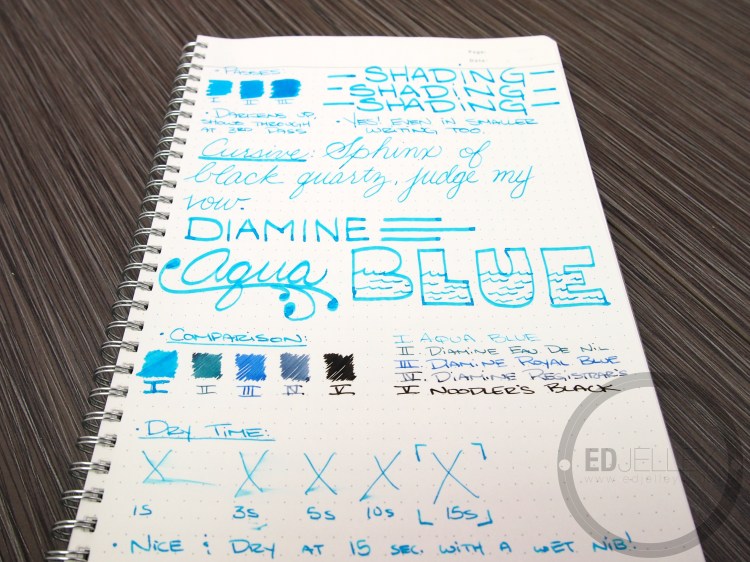 Page
Date
• PASSES
I II III
SHADING
SHADING
SHADING
• DARKENS UP,
SHOWS THROUGH
AT 3RD PASS
• YES! EVEN IN SMALLER
WRITING TOO.
Cursive: Sphinx of
black quartz, judge my
vow.
DIAMINE
Aqua BLUE
• COMPARISON:
I II III IV. V
I AQUA BLUE
II. DIAMINE EAU DE NIL
III DIAMINE ROYAL BLUE
IV. DIAMINE REGISTRAR'S
V NOODLER'S BLACK
• DRY TIME:
X X X X X
1S 3S 5S 10S 15S
• NICE & DRY AT 15 SEC. WITH A WET NIB!
EDJELLEY